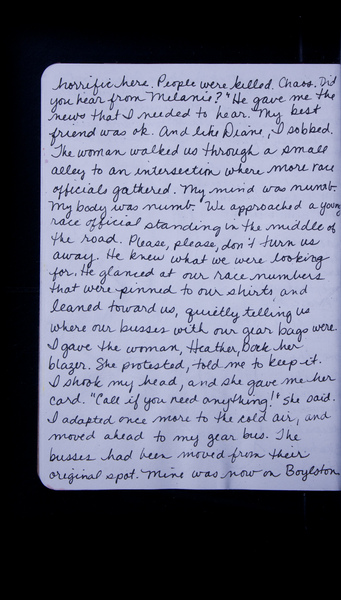 horrific here. People were killed. Chaos. Did
you hear from Melanie?" He gave me the
news that I needed to hear. My best
friend was ok. And like Diane, I sobbed.
The woman walked us through a small
alley to an intersection where more race
officials gathered. My mind was numb.
My body was numb. We approached a young
race official standing in the middle of
the road. Please, please, don't turn us
away. He knew what we were looking
for. He glanced at our race numbers
that were pinned to our shirts and
leaned toward us, quietly telling us
where our busses with our gear bags were.
I gave the woman, Heather, back her
blazer. She protested, told me to keep it.
I shook my head, and she gave me her
card. "Call if you need anything!" she said.
I adapted once more to the cold air, and
moved ahead to my gear bus. The
busses had been moved from their
original spot. Mine was now on Boylston